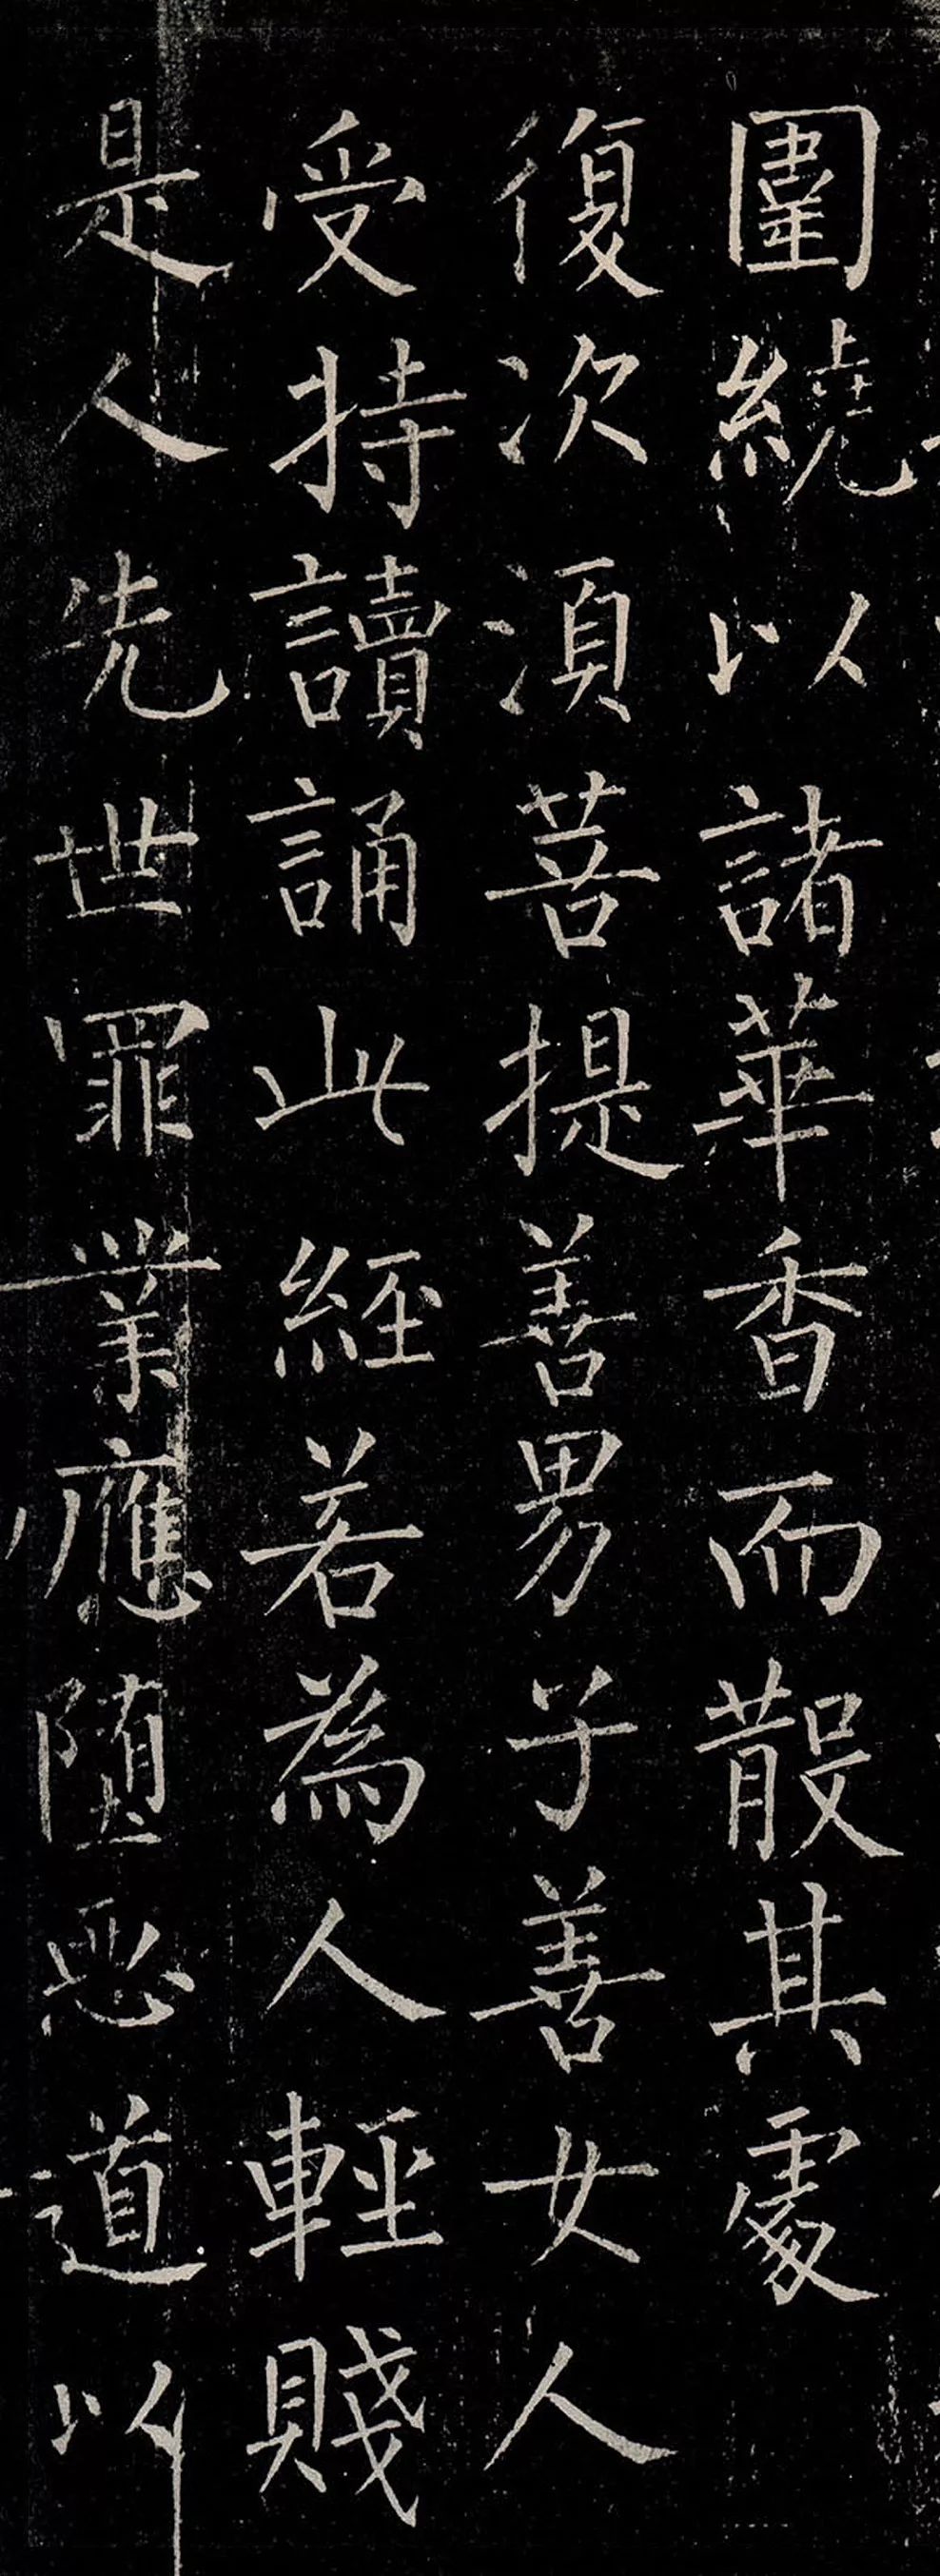 圍繞以諸華香而散其處
復次須菩提善男子善女人
受持讀誦此經若為人輕賤
是人先世罪業應墮惡道以